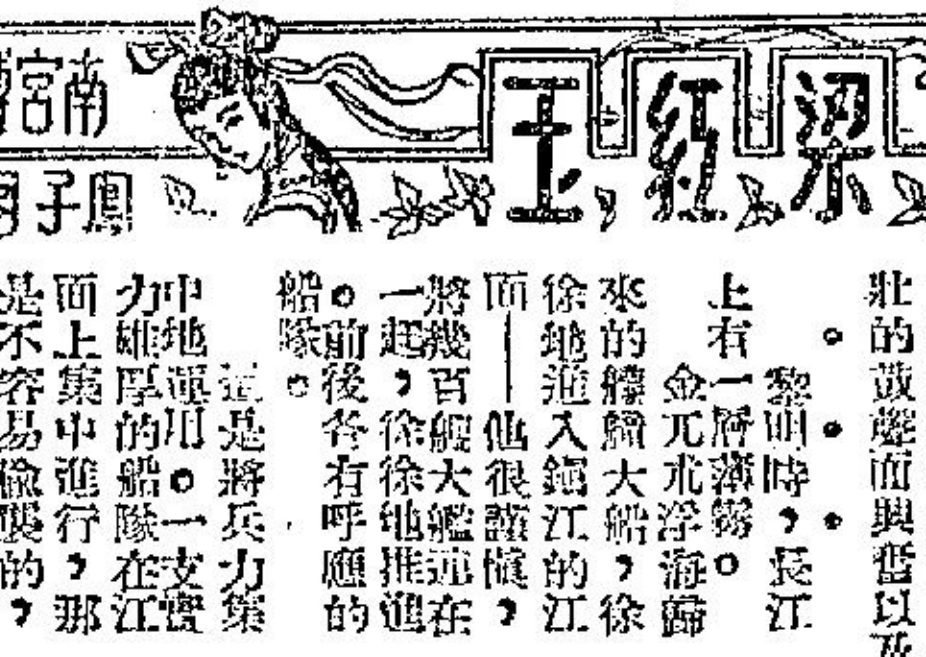 梁紅玉
南宮
鳳子
壯的鼓聲而興奮以及
。。。
黎明時，長江
上有一層薄霧。
金元朮浮海歸
來的艨艟大船，徐
徐地進入鎮江的江
面——他很謹慎，
將幾百艘大艦連在
一起，徐徐地推進
。前後各有呼應的
船隊。
這是將兵力集
中地運用。一支實
力雄厚的船隊在江
面上集中進行，那
是不容易偷襲的，